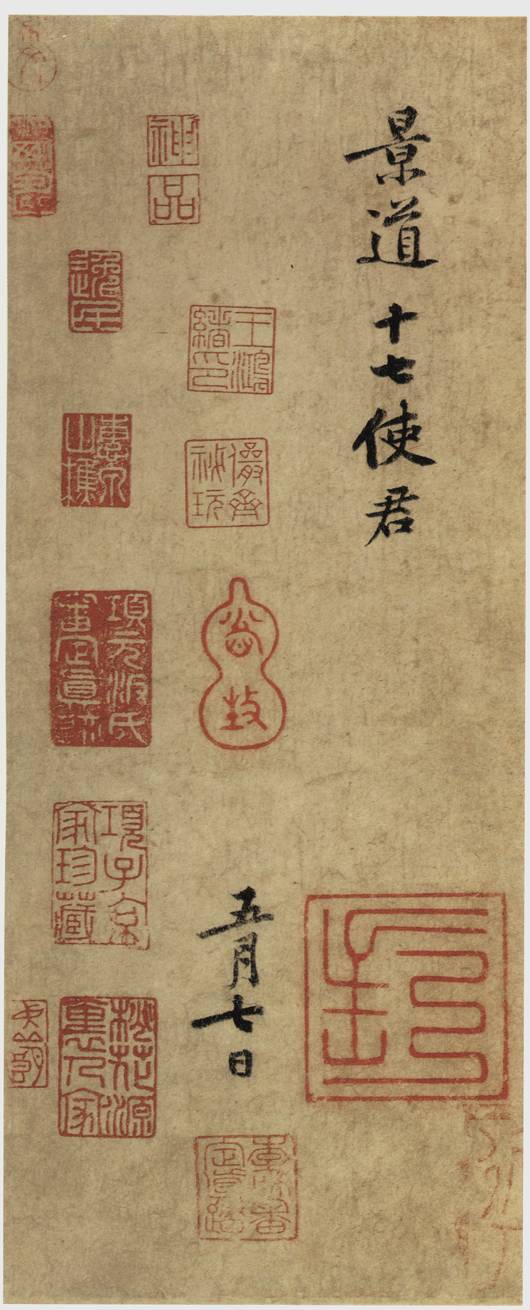 景道十七使君
五月七日
封
神品
王鴻緒印
儼齋秘玩
逸民
惠泉山樵
項元汴氏審定真跡
項子京家珍藏
桃花源里人家